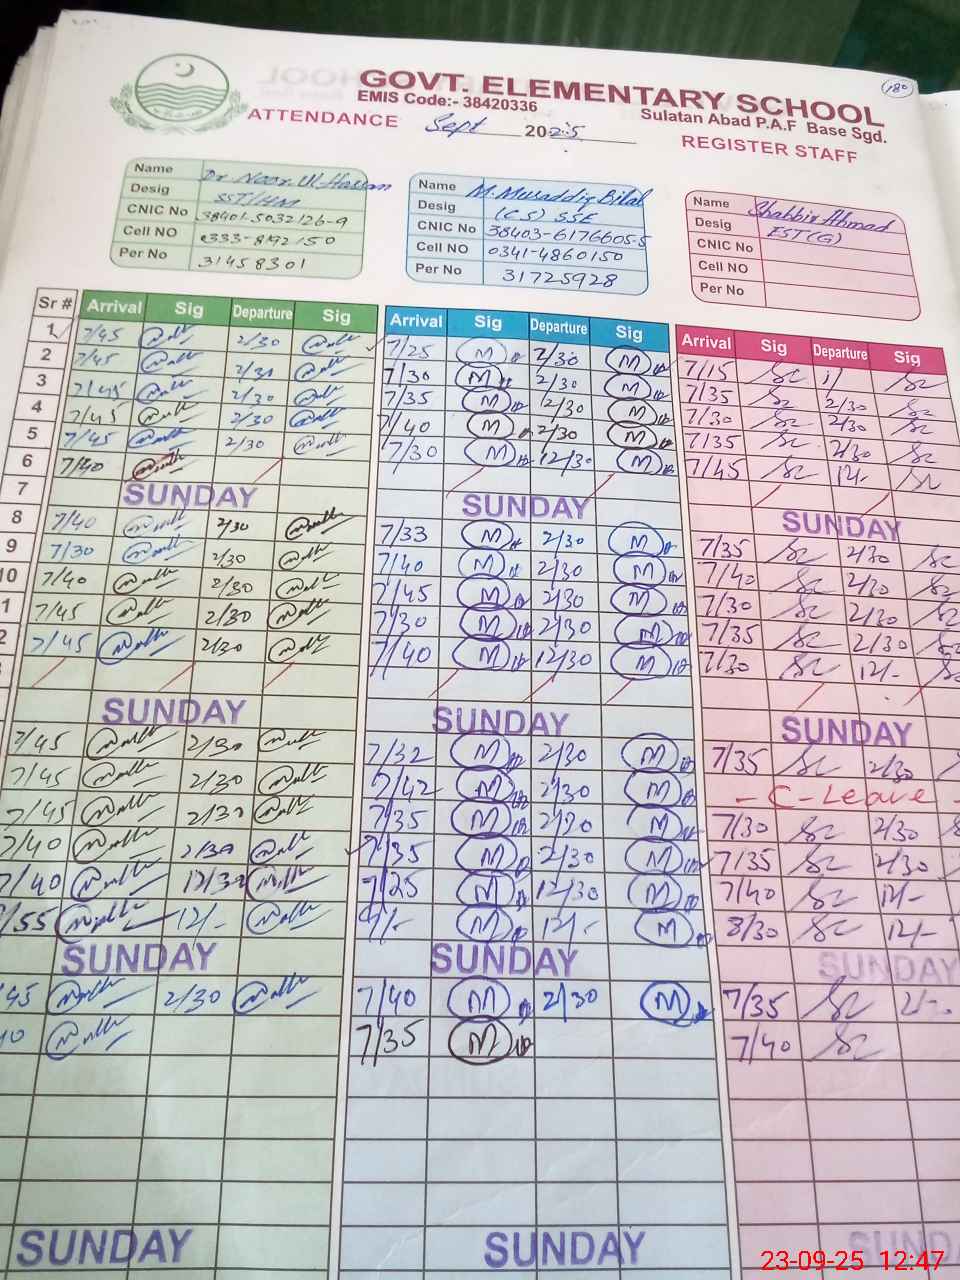 180
GOVT. ELEMENTARY SCHOOL
EMIS Code:- 38420336
Sulatan Abad P.A.F Base Sgd.
ATTENDANCE Sept 2025 REGISTER STAFF
Name Dr Noor Ul Hassan
Desig SST/HM
CNIC No 38401-5032126-9
Cell NO 0333-8192150
Per No 31458301
Name M. Musaddiq Bilal
Desig (CS) SSE
CNIC No 38403-6176605-5
Cell NO 0341-4860150
Per No 31725928
Name Shabbir Ahmad
Desig EST(G)
CNIC No
Cell NO
Per No
Sr # Arrival Sig Departure Sig Arrival Sig Departure Sig Arrival Sig Departure Sig
1 7/45 2/30 7/25 M 2/30 M 7/15
2 7/45 2/30 7/30 M 2/30 M 7/35 2/30
3 7/45 2/30 7/35 M 2/30 M 7/30 2/30
4 7/45 2/30 7/40 M 2/30 M 7/35 2/30
5 7/45 2/30 7/30 M 12/30 M 7/45 12/-
6 7/40
7 SUNDAY SUNDAY SUNDAY
8 7/40 2/30 7/33 M 2/30 M 7/35 2/30
9 7/30 2/30 7/40 M 2/30 M 7/40 2/30
10 7/40 2/30 7/45 M 2/30 M 7/30 2/30
1 7/45 2/30 7/30 M 2/30 M 7/35 2/30
2 7/45 2/30 7/40 M 12/30 M 7/30 12/-
SUNDAY SUNDAY SUNDAY
7/45 2/30 7/32 M 2/30 M 7/35 2/30
7/45 2/30 7/42 M 2/30 M - C - Leave -
7/45 2/30 7/35 M 2/30 M 7/30 2/30
7/40 2/30 7/35 M 2/30 M 7/35 2/30
7/40 12/30 7/25 M 12/30 M 7/40 12/-
/55 12/- 9/- M 12/- M 8/30 12/-
SUNDAY SUNDAY SUNDAY
45 2/30 7/40 M 2/30 M 7/35 2/-
40 7/35 M 7/40
SUNDAY SUNDAY SUND
23-09-25 12:47